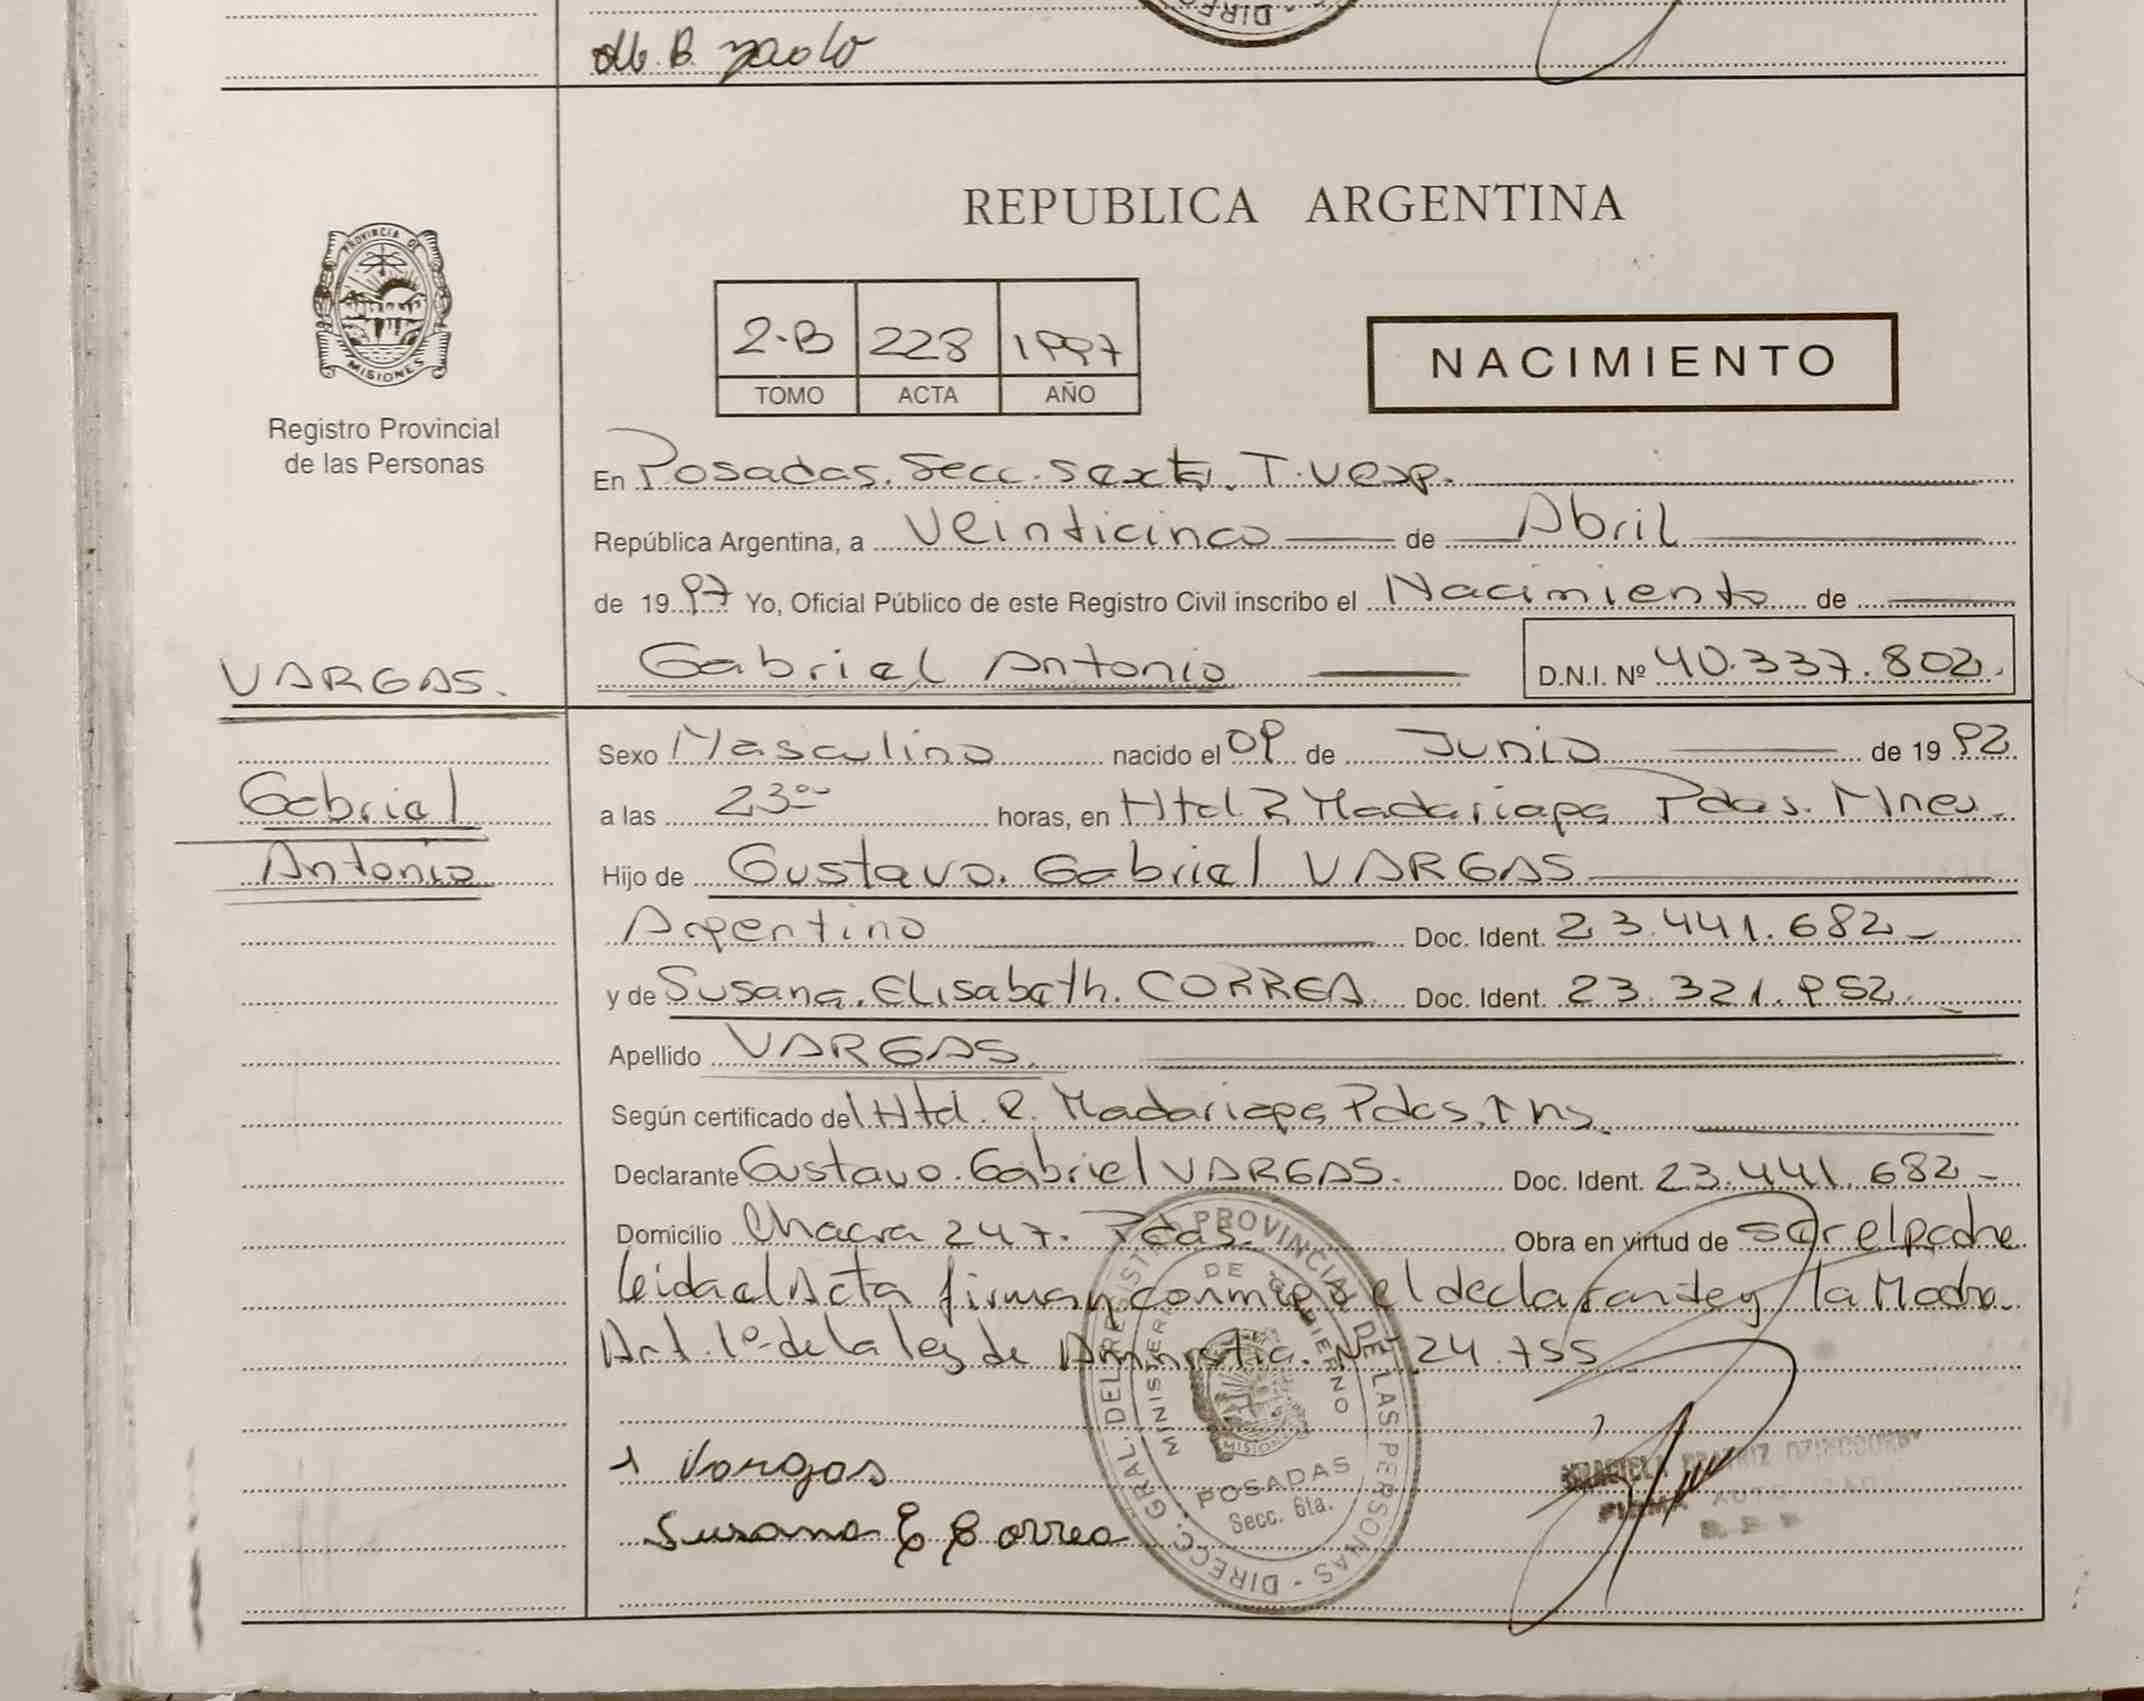 DIREC
PROVINCIA DE
MISIONES
Registro Provincial
de las Personas
VARGAS.
Gabriel
Antonio
REPUBLICA ARGENTINA
2-B 228 1997
TOMO ACTA AÑO
NACIMIENTO
En Posadas. Secc. Sexta. T. Vesp.
República Argentina, a Veinticinco de Abril
de 1997 Yo, Oficial Público de este Registro Civil inscribo el Nacimiento de
Gabriel Antonio D.N.I. Nº 40.337.802.
Sexo Masculino nacido el 09 de Junio de 1992
a las 23 00 horas, en Htal R Madariaga Pdas. Mnes.
Hijo de Gustavo. Gabriel VARGAS
Argentino Doc. Ident. 23.441.682-
y de Susana. Elisabeth. CORREA Doc. Ident. 23.321.952.
Apellido VARGAS.
Según certificado del Htal. R. Madariaga Pdas. Mns.
Declarante Gustavo. Gabriel VARGAS. Doc. Ident. 23.441.682-
Domicilio Chacra 247. Pdas. Obra en virtud de ser el padre
leida el Acta firman conmigo el declarante y la Madre.
Art. 1º de la ley de Amnistia. Nº 24.755
Vargas
Susana E Correa
DIRECC. GRAL. DEL REGISTRO PROVINCIAL DE LAS PERSONAS
MINISTERIO DE GOBIERNO
MISIONES
POSADAS
Secc. 6ta.
FIRMA